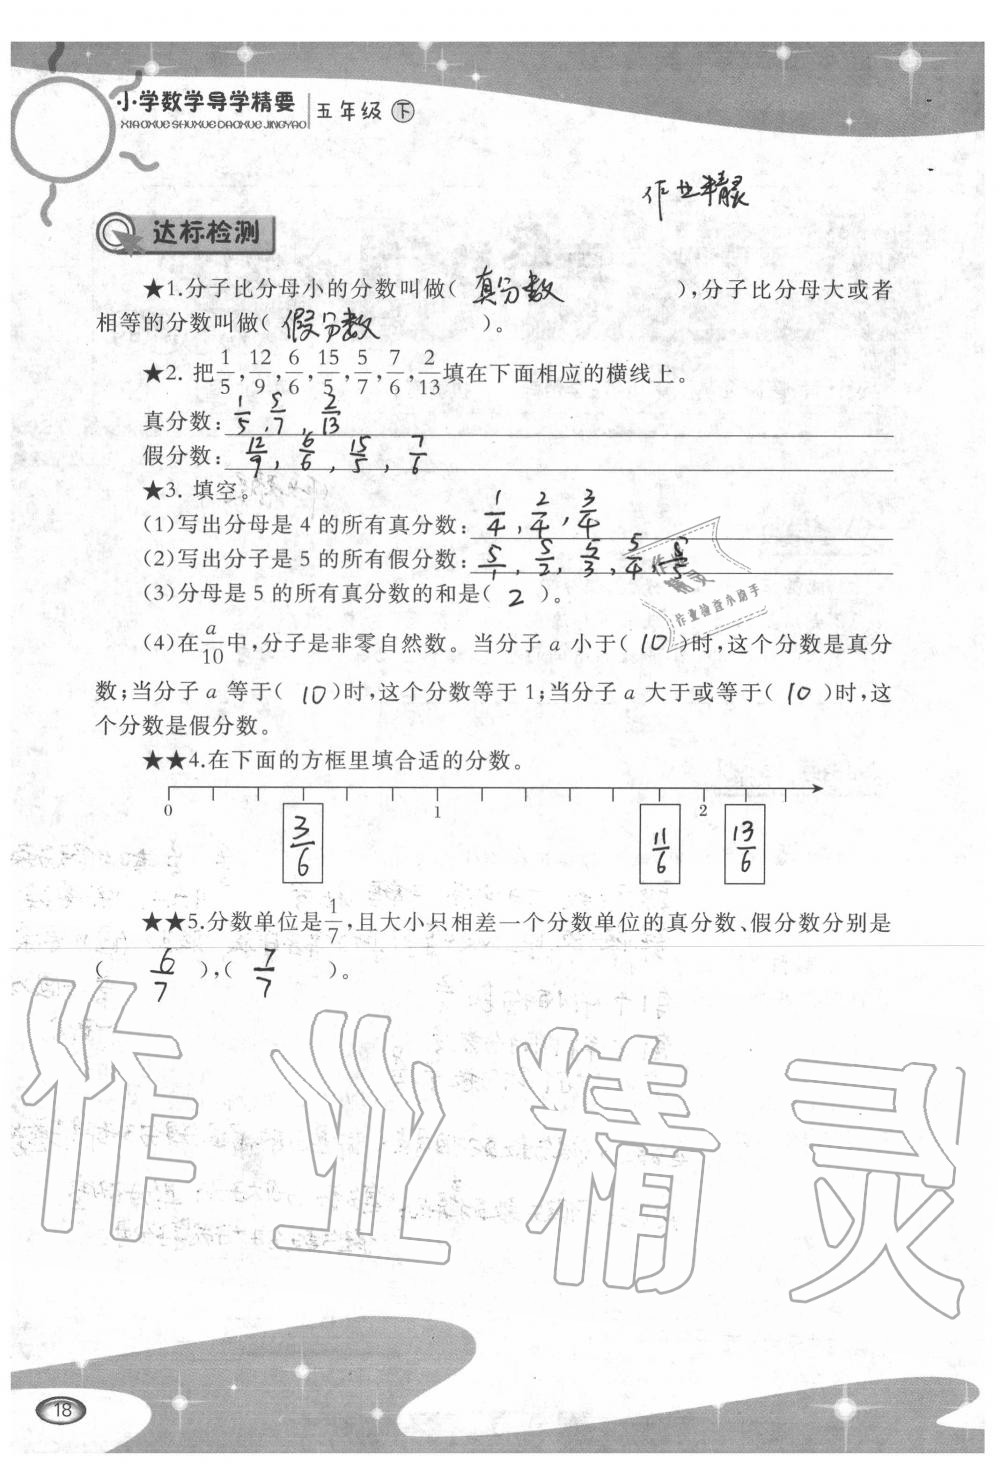 小学数学导学精要 五年级 下
XIAOXUE SHUXUE DAOXUE JINGYAO
作业精灵
达标检测
★1.分子比分母小的分数叫做( 真分数 ),分子比分母大或者
相等的分数叫做( 假分数 )。
★2. 把1/5,12/9,6/6,15/5,5/7,7/6,2/13填在下面相应的横线上。
真分数: 1/5,5/7,2/13
假分数: 12/9,6/6,15/5,7/6
★3. 填空。
(1)写出分母是 4 的所有真分数: 1/4,2/4,3/4
(2)写出分子是 5 的所有假分数: 5/1,5/2,5/3,5/4,5/5
(3)分母是 5 的所有真分数的和是( 2 )。
作业精灵
作业检查小助手
(4)在a/10中,分子是非零自然数。当分子 a 小于( 10 )时,这个分数是真分
数;当分子 a 等于( 10 )时,这个分数等于 1;当分子 a 大于或等于( 10 )时,这
个分数是假分数。
★★4.在下面的方框里填合适的分数。
0 1 2
3/6 11/6 13/6
★★5.分数单位是1/7,且大小只相差一个分数单位的真分数、假分数分别是
( 6/7 ),( 7/7 )。
作业精灵
18